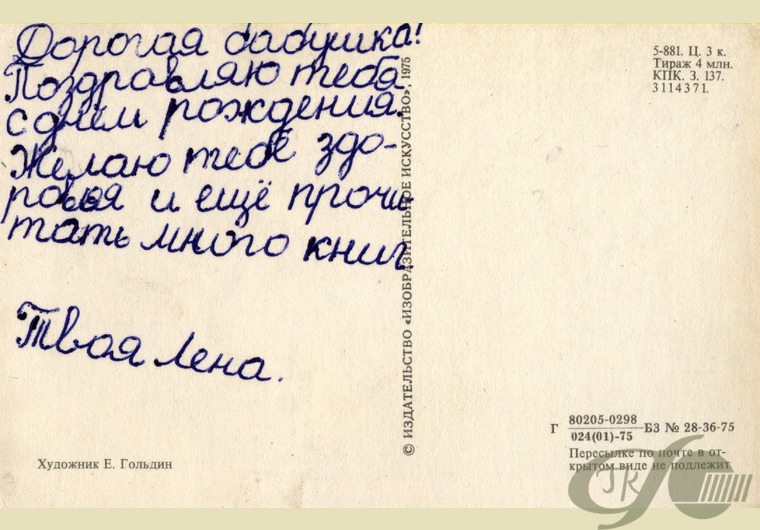 Дорогая бабушка!
Поздравляю тебя
с днём рождения.
Желаю тебе здо-
ровья и ещё прочи-
тать много книг.
Твоя Лена.
Художник Е. Гольдин
© ИЗДАТЕЛЬСТВО «ИЗОБРАЗИТЕЛЬНОЕ ИСКУССТВО», 1975
5-881. Ц. 3 к.
Тираж 4 млн.
КПК. З. 137.
3114371.
Г 80205-0298 БЗ № 28-36-75
024(01)-75
Пересылке по почте в от-
крытом виде не подлежит
JR